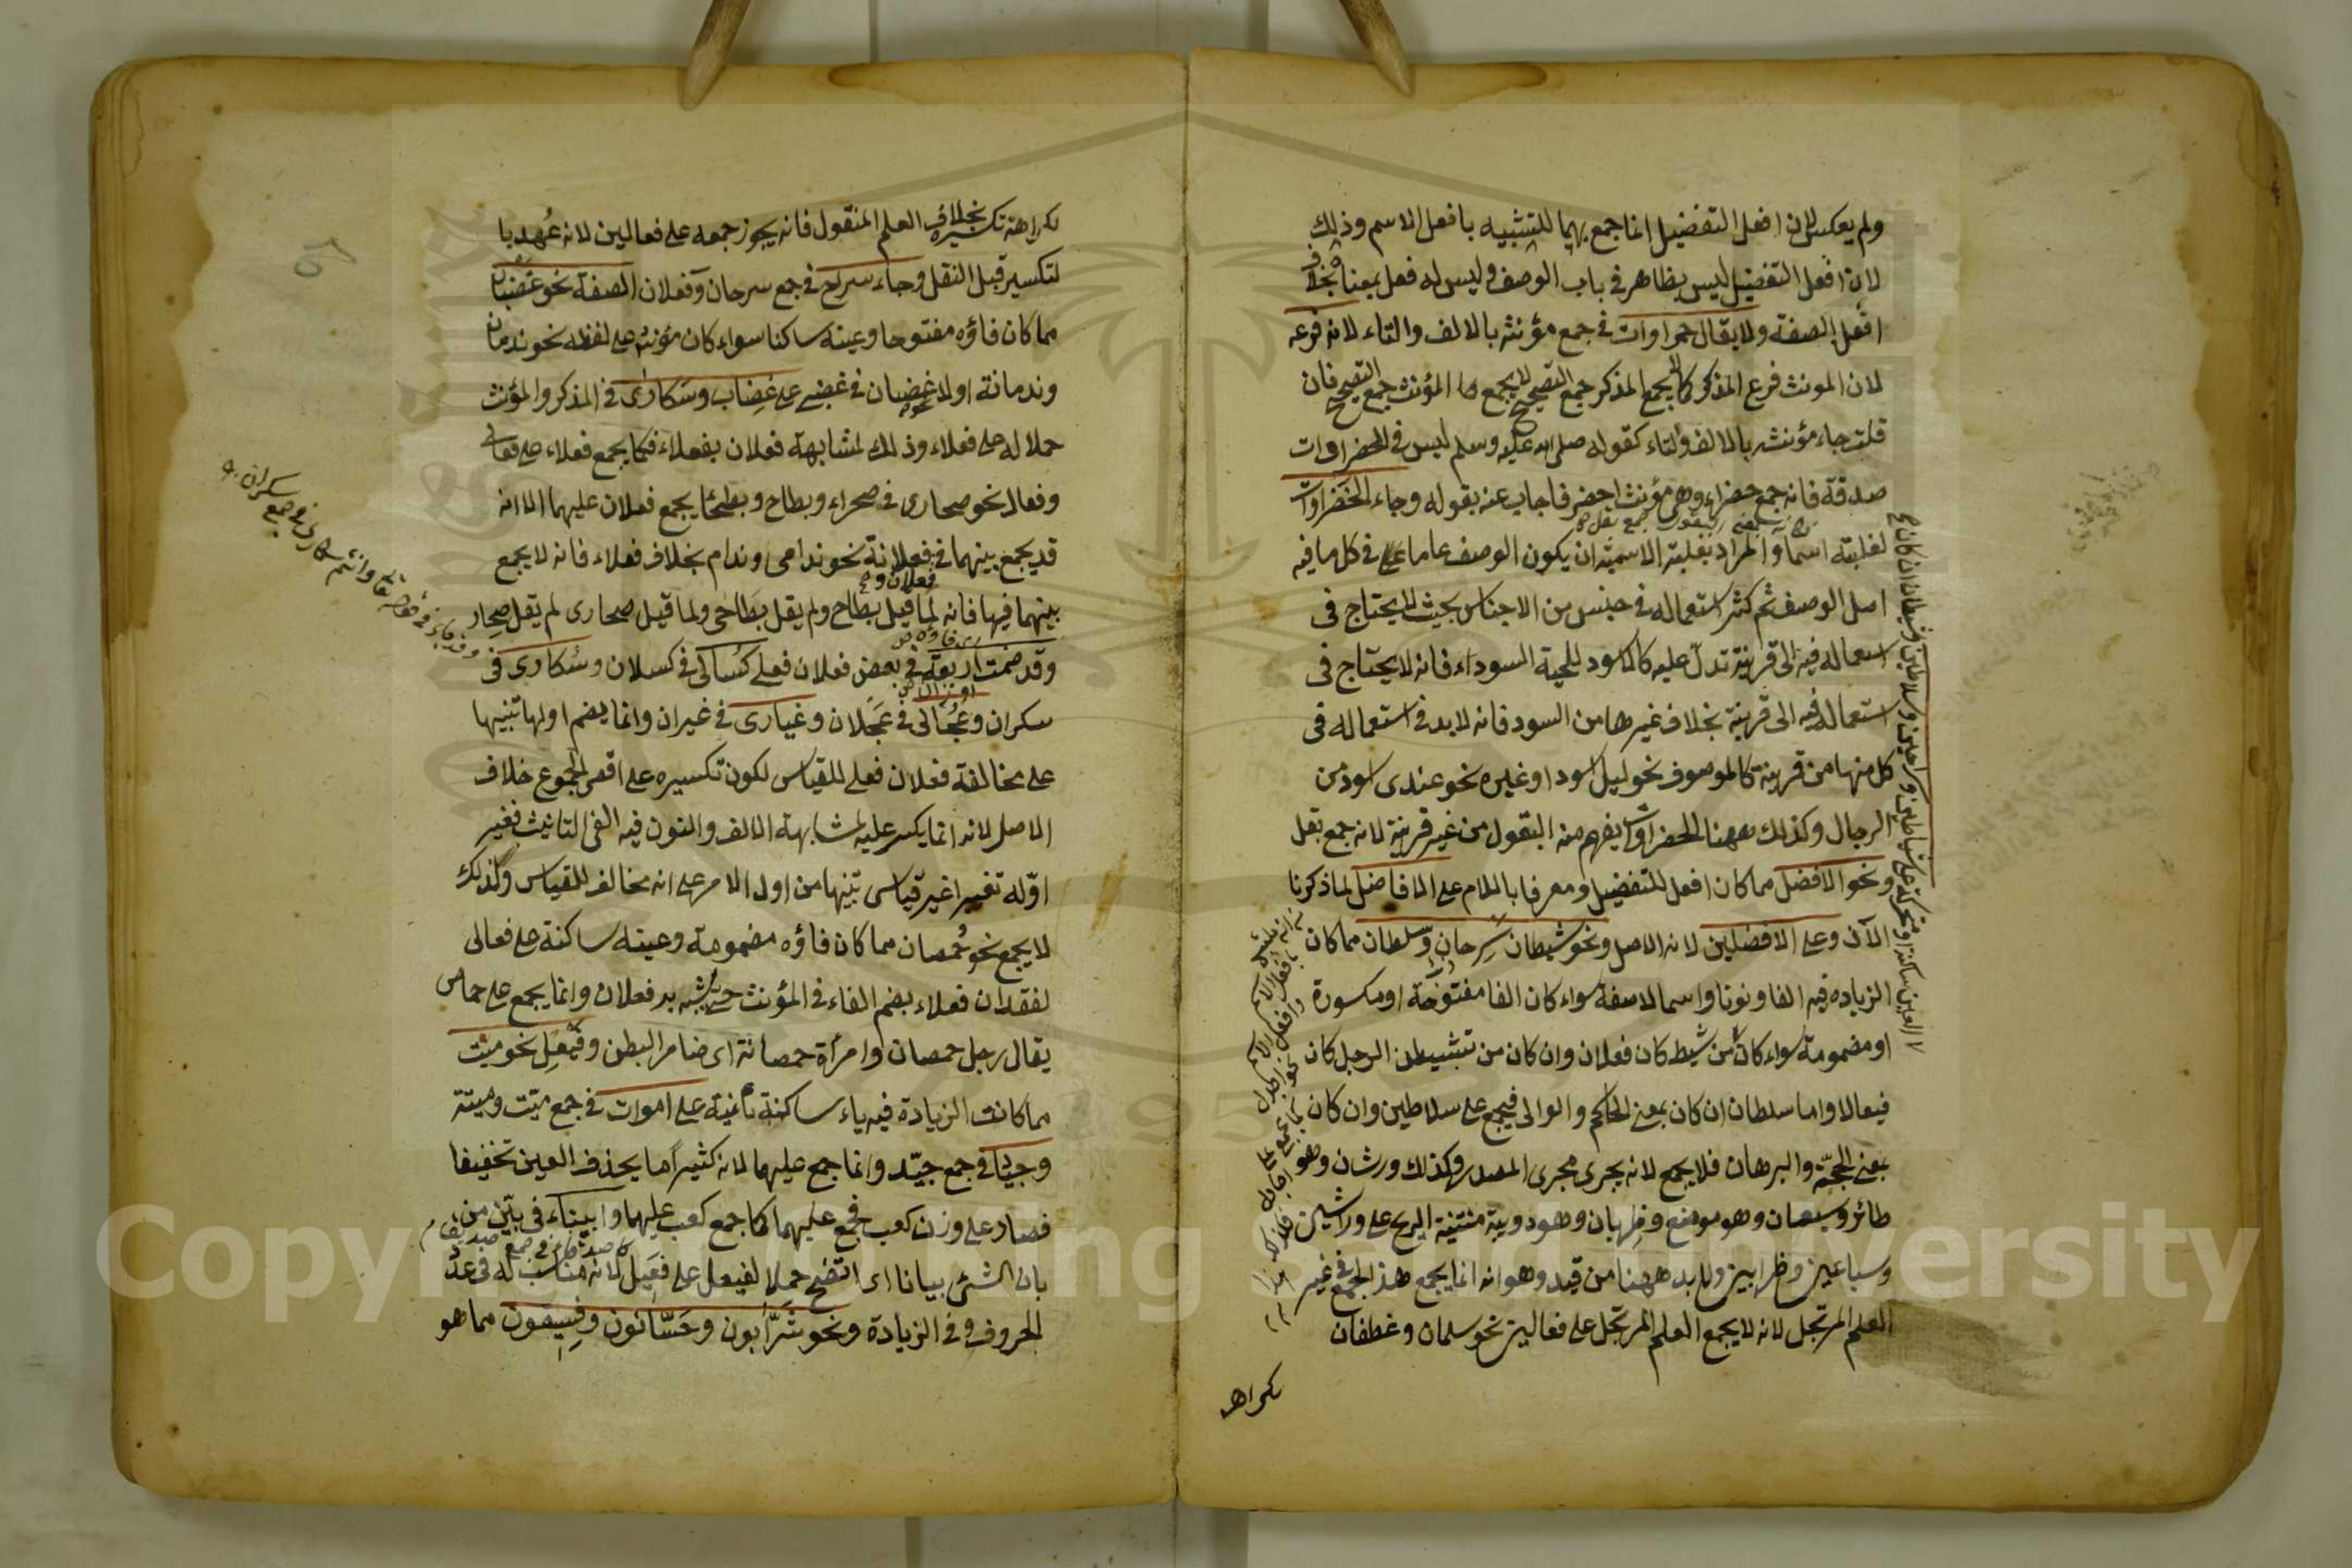 ولم يعكس لان افعل التفضيل انما جمع بهما للتشبيه بافعل الاسم وذلك
لان افعل التفضيل ليس بظاهر في باب الوصف وليس له فعل بمعناه بخلاف
افعل الصفة ولا يقال حمراوات في جمع مؤنثه بالالف والتاء لانه فرعه
لان المونث فرع المذكر كما لا يجمع المذكر جمع التصحيح لا يجمع المؤنث جمع التصحيح فان
قلت جاء مؤنثه بالالف والتاء كقوله صلى الله عليه وسلم ليس في الخضراوات
صدقة فانه جمع خضراء وهي مؤنث اخضر فاجاب عنه بقوله وجاء الخضراوات
لغلبته اسما والمراد بغلبته الاسمية ان يكون الوصف عاما في كل ما فيه
اصل الوصف ثم كثر استعماله في جنس من الاجناس بحيث لا يحتاج في
استعماله فيه الى قرينة تدل عليه كالاسود للحية السوداء فانه لا يحتاج في
استعماله فيه الى قرينة بخلاف غيرها من السود فانه لا بد في استعماله في
كل منها من قرينة كالموصوف نحو ليل اسود او غيره نحو عندي اسود من
الرجال وكذلك ههنا الخضراوات يفهم منه البقول من غير قرينة لانه جمع بقل
ونحو الافضل مما كان افعل للتفضيل ومعرفا باللام على الافاضل لما ذكرنا
الآن وعلى الافضلين لانه الاصل ونحو شيطان سرحان وسلطان مما كان
الزياده فيه الفا ونونا واسما لا صفة سواء كان الفا مفتوحة او مكسورة
او مضمومة سواء كان من شيط كان فعلان وان كان من تشيطن الرجل كان
فيعالا واما سلطان ان كان بمعنى الحاكم والوالى فيجمع على سلاطين وان كان
بمعنى الحجة والبرهان فلا يجمع لانه يجرى مجرى المصدر وكذلك ورشان وهو
طائر وسبعان وهو موضع وظربان وهو دويبة منتنة الريح على وراشين
وسباعين وظرابين ولا بد ههنا من قيد وهو انه انما يجمع هذا الجمع في غير
العلم المرتجل لانه لا يجمع العلم المرتجل على فعالين نحو سلمان وغطفان
لكراهة
لكراهة تكسيره بخلاف العلم المنقول فانه يجوز جمعه على فعالين لانه عهد با
لتكسير قبل النقل وجاء سراح في جمع سرحان وفعلان الصفة نحو غضبان
مما كان فاؤه مفتوحا وعينه ساكنا سواء كان مؤنثه على لفظه نحو ندمان
وندمانة او لا نحو غضبان في غضبى على غضاب وسكارى في المذكر والمؤنث
حملا له على فعلاء وذلك لمشابهة فعلان بفعلاء فكما يجمع فعلاء على فعالى
وفعال نحو صحارى في صحراء وبطاح وبطحاء يجمع فعلان عليهما الا انه
قد يجمع بينهما في فعلان وفعلانة نحو ندامى وندام بخلاف فعلاء فانه لا يجمع
بينهما فيها فانه لما قيل بطاح ولم يقل بطاحى ولما قيل صحارى لم يقل صحار
وقد ضمت اربعة في بعض فعلان فعلى كسالى في كسلان وسكارى في
سكران وعجالى في عجلان وغيارى في غيران وانما يضم اولها تنبيها
على مخالفة فعلان فعلى للقياس لكون تكسيره على اقصى الجموع خلاف
الاصل لانه انما يكسر عليه لمشابهة الالف والنون فيه الفى التانيث فغير
اوله تغييرا غير قياسى تنبيها من اول الامر على انه مخالف للقياس وكذلك
لا يجمع نحو خمصان مما كان فاؤه مضمومة وعينه ساكنة على فعالى
لفقدان فعلاء بضم الفاء في المؤنث حتى يشبه به فعلان وانما يجمع على خماص
يقال رجل خمصان وامرأة خمصانة اى ضامر البطن وفيعل نحو ميت
مما كانت الزيادة فيه ياء ساكنة ثانية على اموات في جمع ميت وميتة
وجياد في جمع جيد وانما جمع عليهما لانه كثيرا ما يحذف العين تخفيفا
فصار على وزن كعب فجمع عليهما كما جمع كعب عليهما وابيناء في بين من
بان الشئ بيانا اى اتضح حملا لفيعل على فعيل لانه مناسب له في عدد
الحروف وفي الزيادة ونحو شرابون وحسانون وفسيقون مما هو